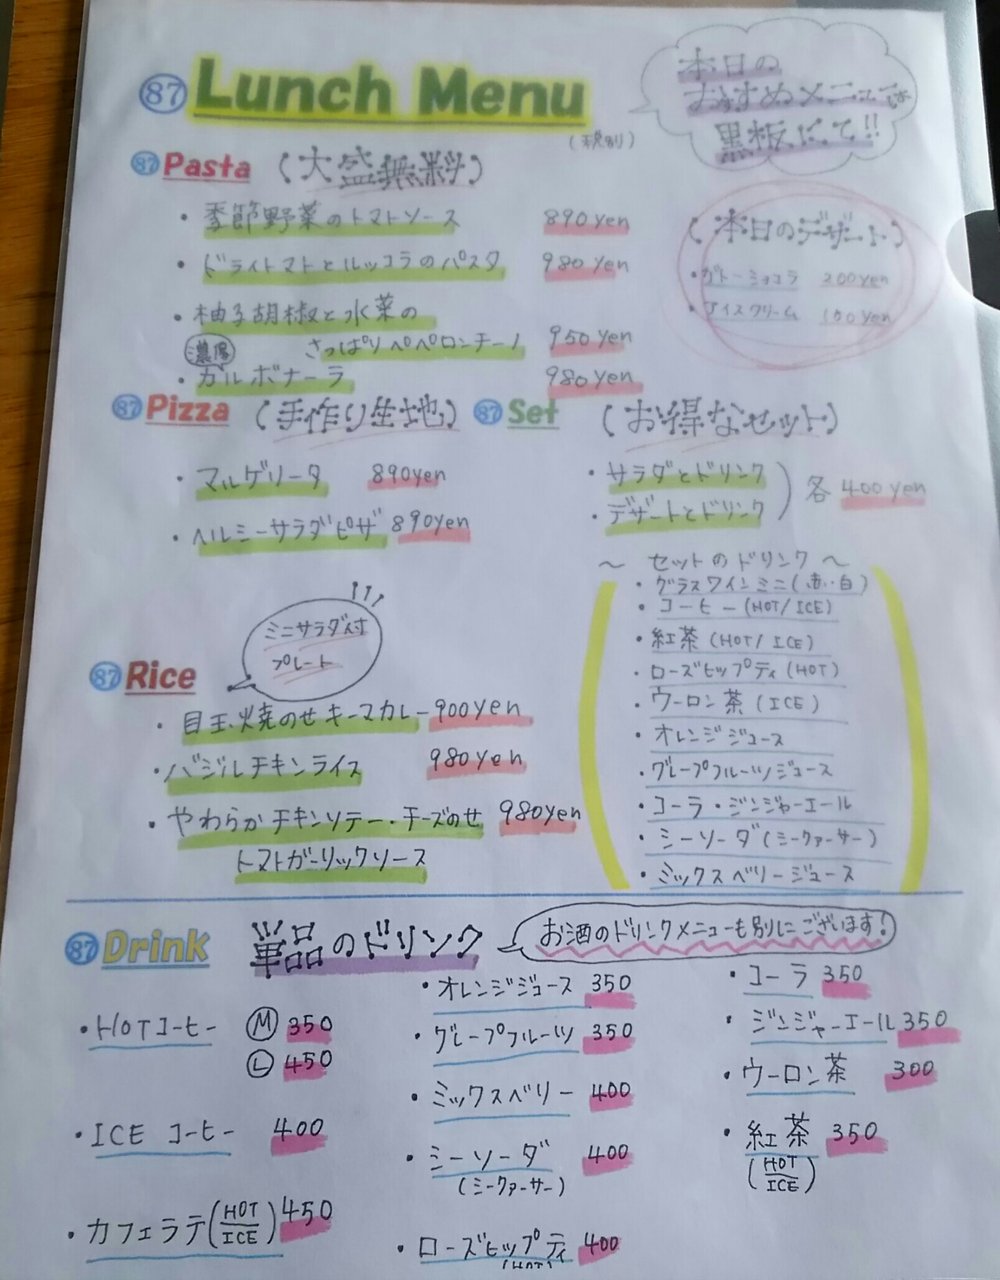 87 Lunch Menu
(税別)
本日の
おすすめメニューは
黒板にて!!
87 Pasta (大盛無料)
・季節野菜のトマトソース 890yen
・ドライトマトとルッコラのパスタ 980yen
・柚子胡椒と水菜の
さっぱりペペロンチーノ 950yen
濃厚
・カルボナーラ 980yen
(本日のデザート)
・ガトーショコラ 200yen
・アイスクリーム 100yen
87 Pizza (手作り生地)
・マルゲリータ 890yen
・ヘルシーサラダピザ 890yen
87 Set (お得なセット)
・サラダとドリンク
・デザートとドリンク
各 400yen
〜 セットのドリンク 〜
・グラスワインミニ(赤・白)
・コーヒー(HOT/ICE)
・紅茶(HOT/ICE)
・ローズヒップティ(HOT)
・ウーロン茶(ICE)
・オレンジジュース
・グレープフルーツジュース
・コーラ・ジンジャーエール
・シーソーダ(シークァーサー)
・ミックスベリージュース
ミニサラダ付
プレート
87 Rice
・目玉焼のせキーマカレー900yen
・バジルチキンライス 980yen
・やわらかチキンソテー・チーズのせ 980yen
トマトガーリックソース
87 Drink 単品のドリンク
お酒のドリンクメニューも別にございます!
・HOTコーヒー Ⓜ 350
Ⓛ 450
・ICE コーヒー 400
・カフェラテ(HOT/ICE)450
・オレンジジュース 350
・グレープフルーツ 350
・ミックスベリー 400
・シーソーダ 400
(シークァーサー)
・ローズヒップティ 400
(HOT)
・コーラ 350
・ジンジャーエール 350
・ウーロン茶 300
・紅茶 350
(HOT/ICE)